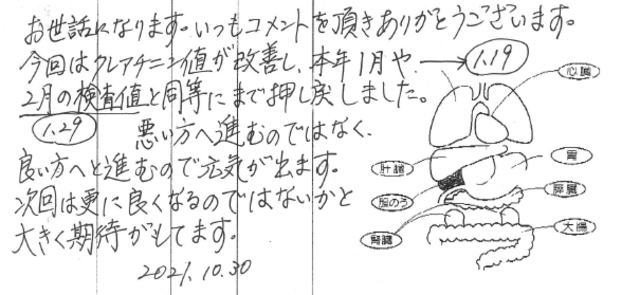 お世話になります。いつもコメントを頂きありがとうございます。
今回はクレアチニン値が改善し、本年1月や
1.19
2月の検査値と同等にまで押し戻しました。
1.29
悪い方へ進むのではなく、
良い方へと進むので元気が出ます。
次回は更に良くなるのではないかと
大きく期待がもてます。
2021.10.30
心臓
肝臓
胃
胆のう
膵臓
腎臓
大腸